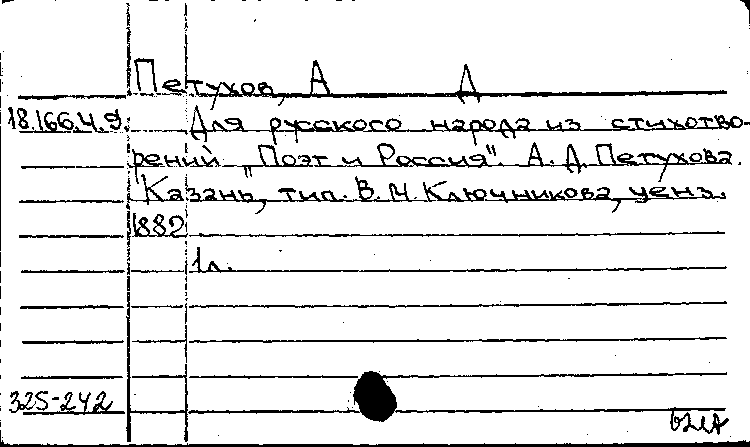 Петухов, А Д
18.166.4.9. Для русского народа из стихотво-
рений „Поэт и Россия". А. Д. Петухова.
Казань, тип. В. М. Ключникова, ценз.
1882.
1л.
325-242